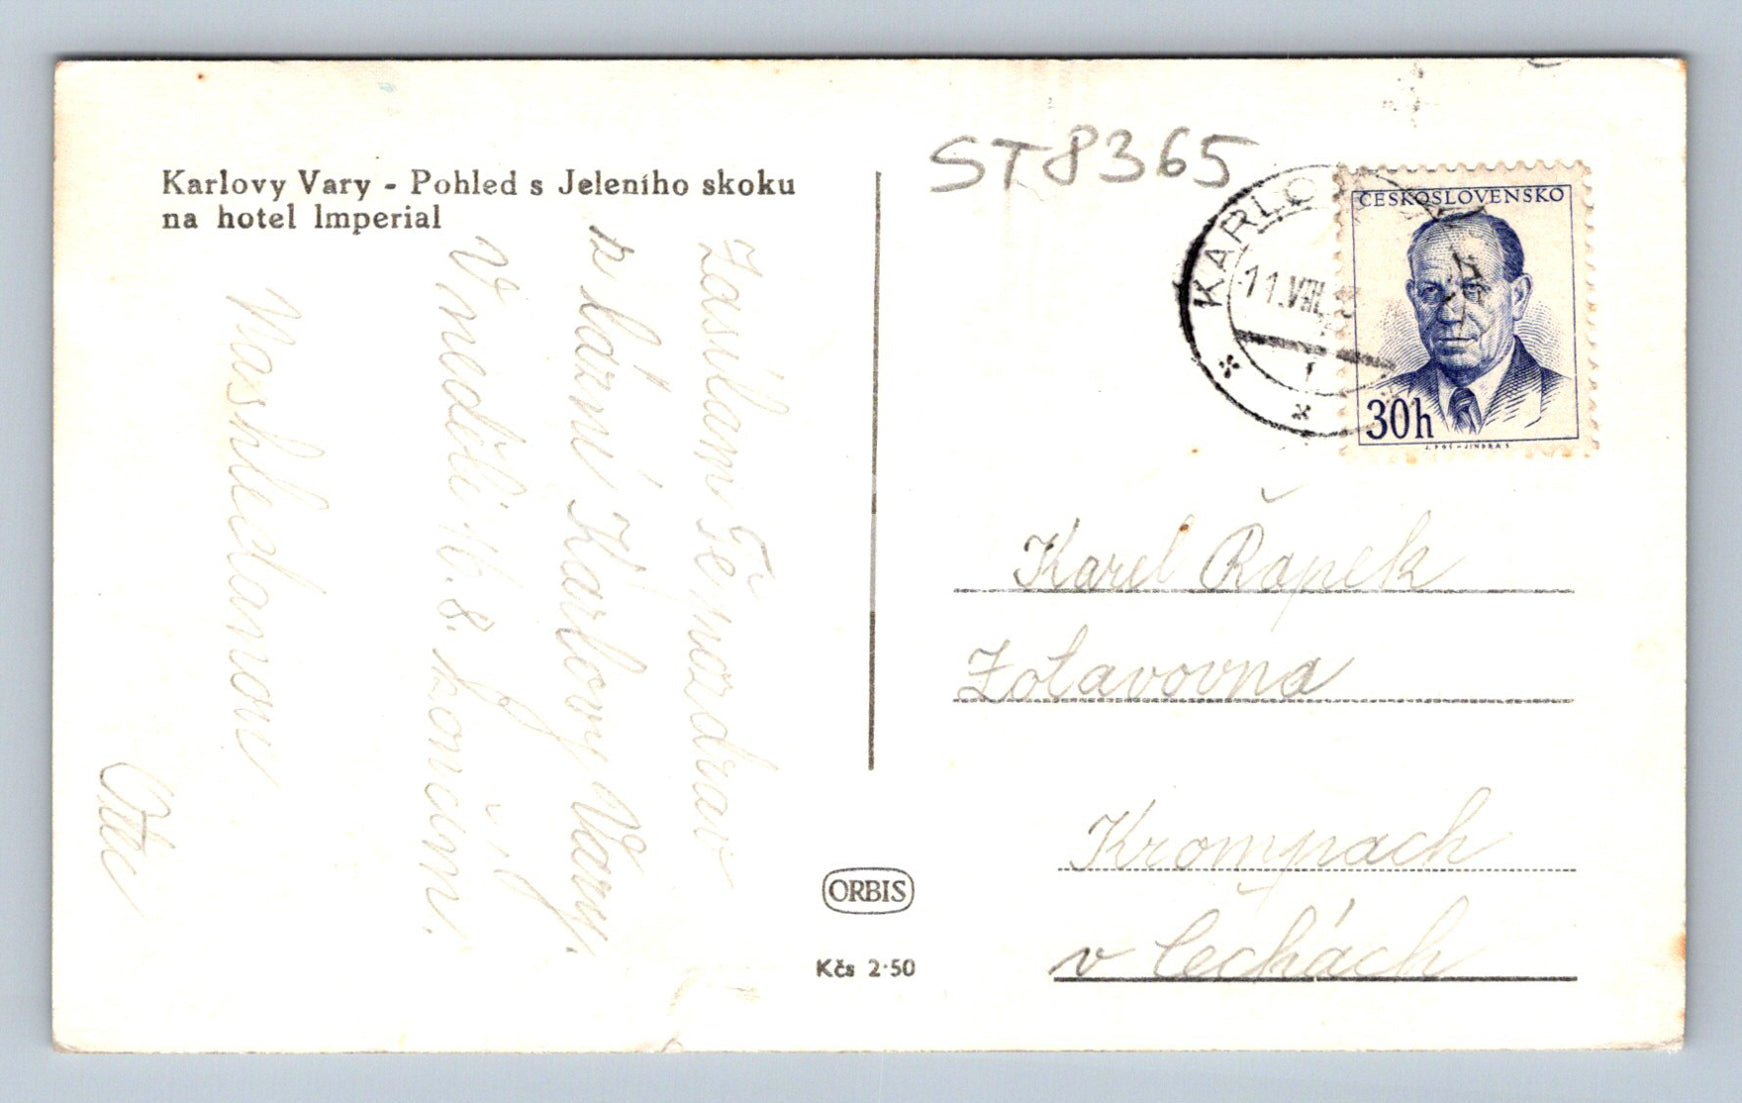 Karlovy Vary - Pohled s Jeleního skoku
na hotel Imperial
Zasílám Ti pozdrav
z lázní Karlovy Vary.
V neděli 16. 8. končím.
Nashledanou
ST8365
KARLO
11.VIII.5
ČESKOSLOVENSKO
30h
Karel Řapek
Zotavovna
Krompach
v Čechách
ORBIS
Kčs 2·50